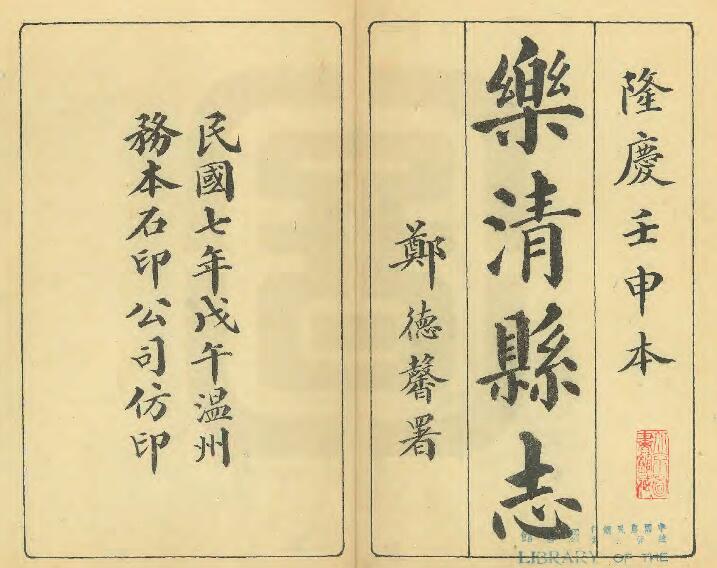 隆慶壬申本
樂清縣志
鄭德馨署
民國七年戊午温州
務本石印公司仿印
LIBRARY OF THE